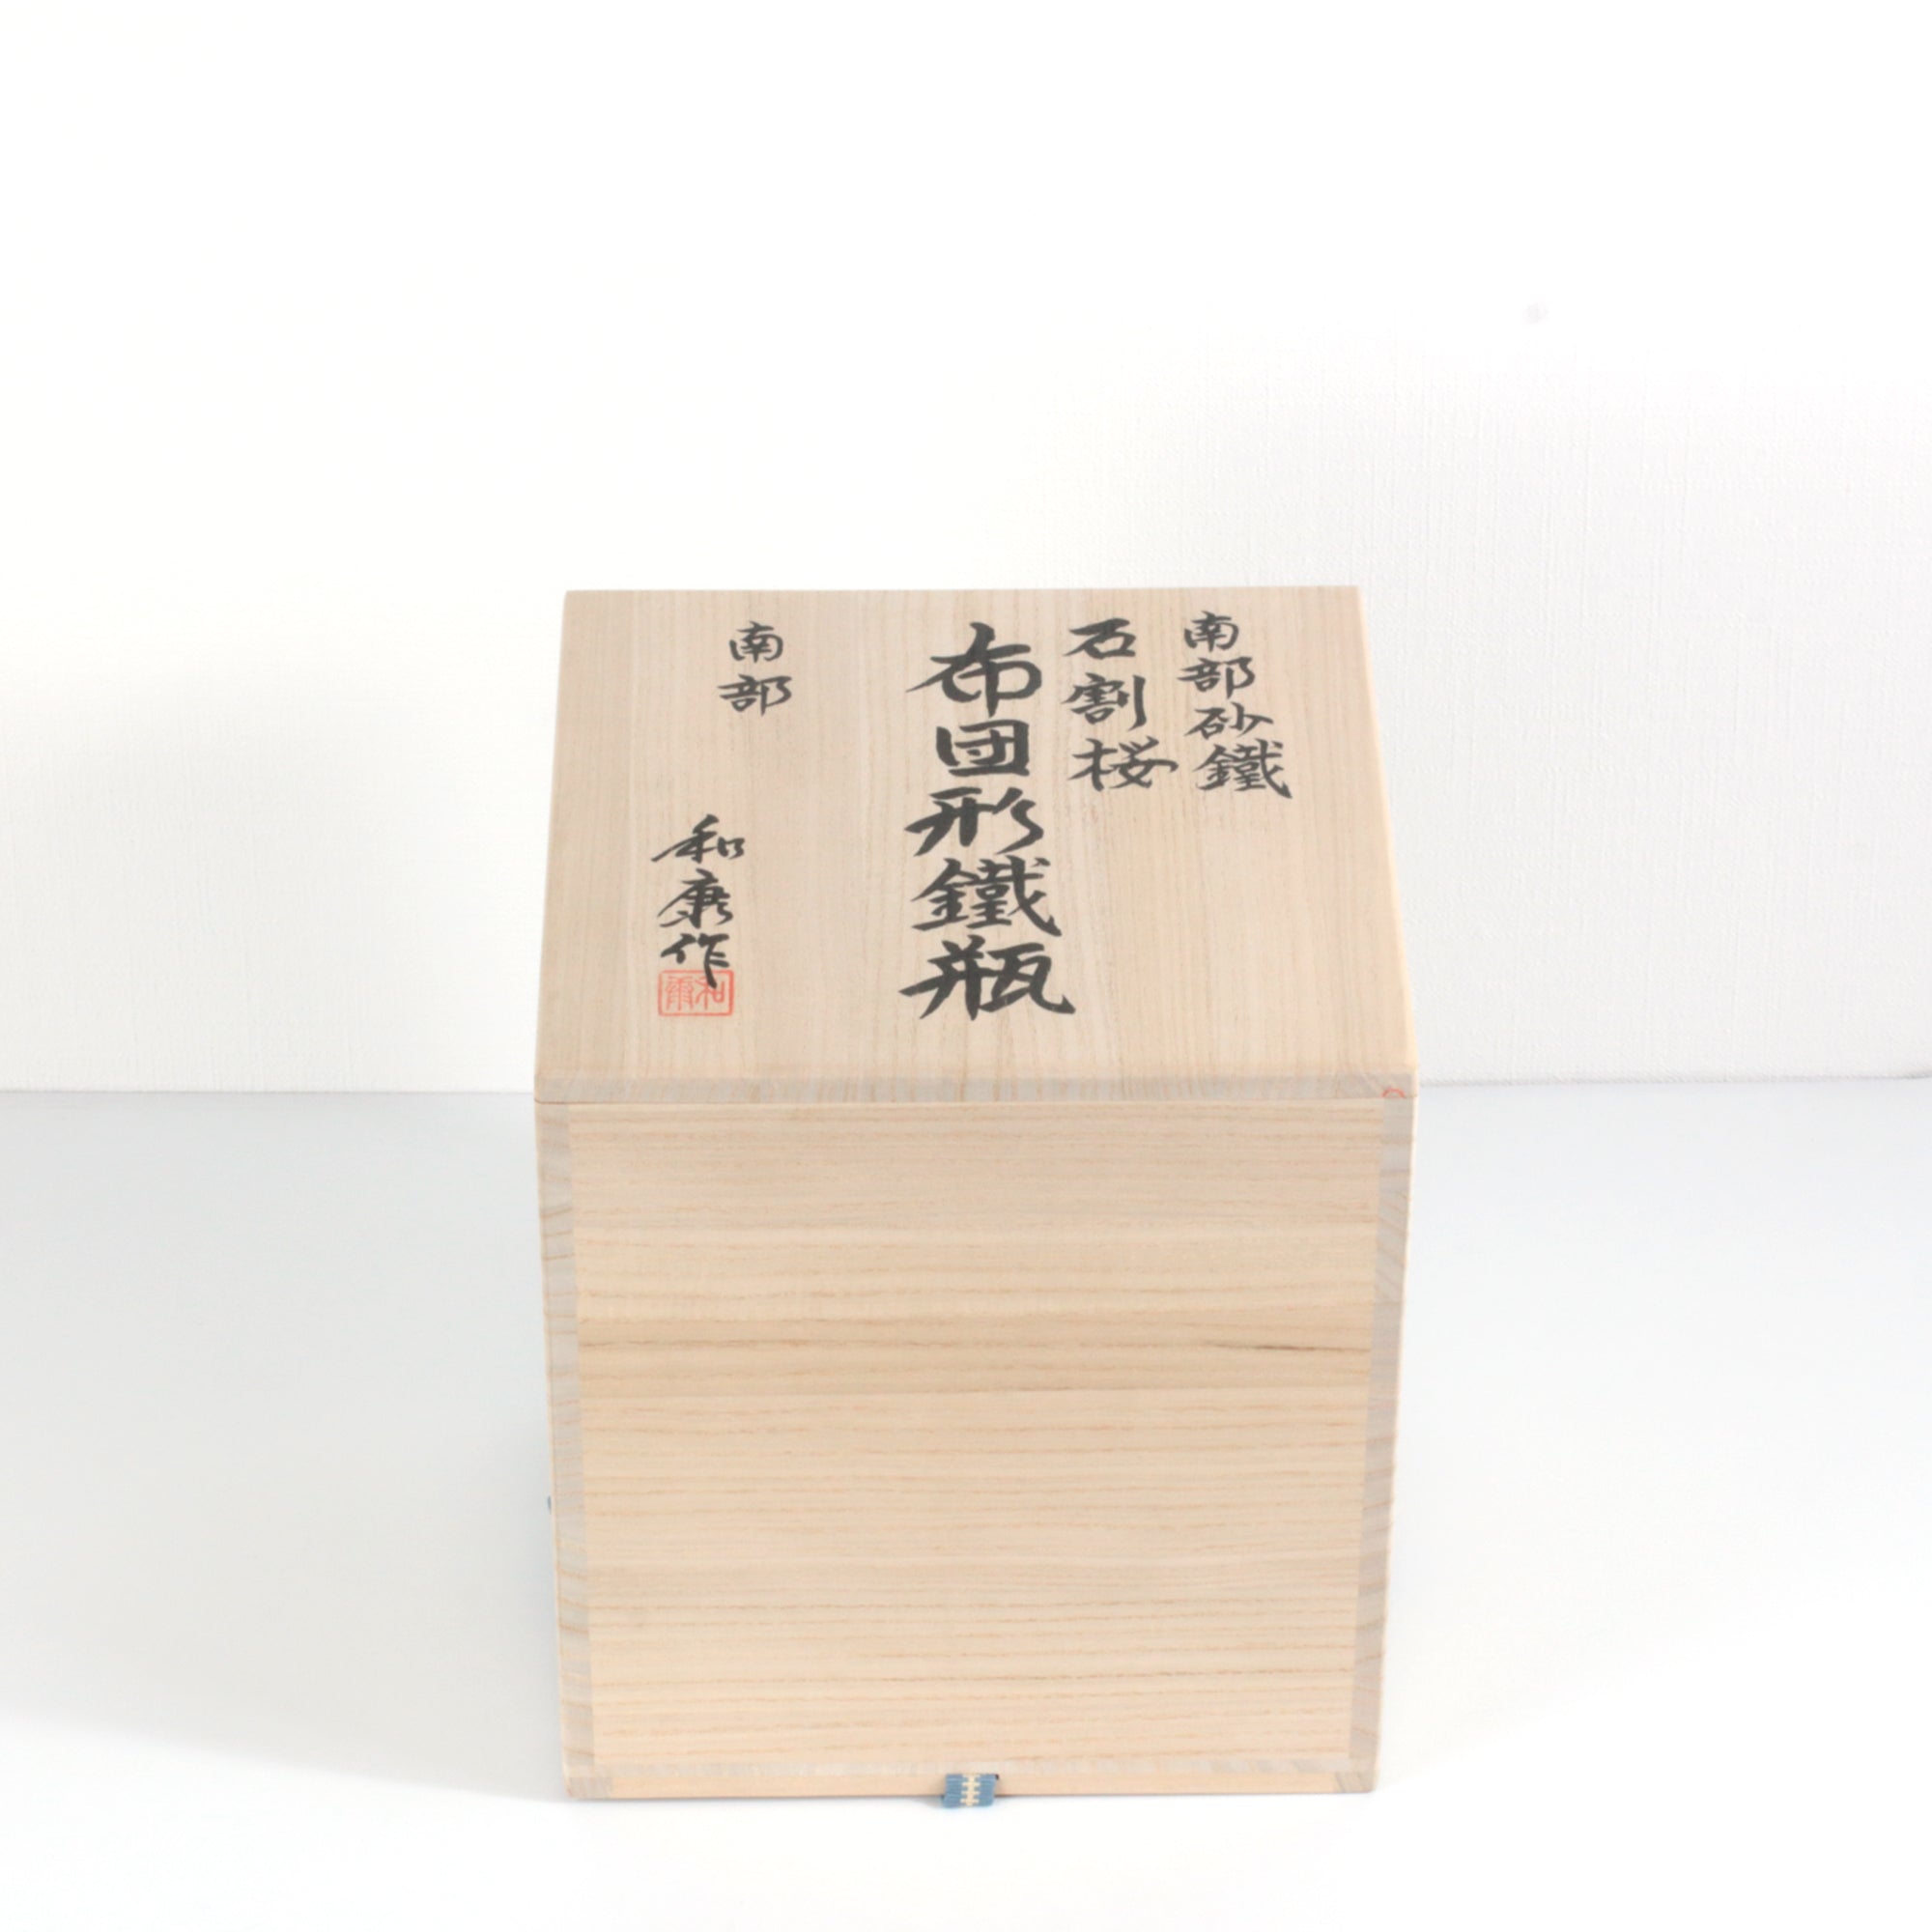 南部砂鐵
石割桜
布団形鐵瓶
南部
和康作
和康